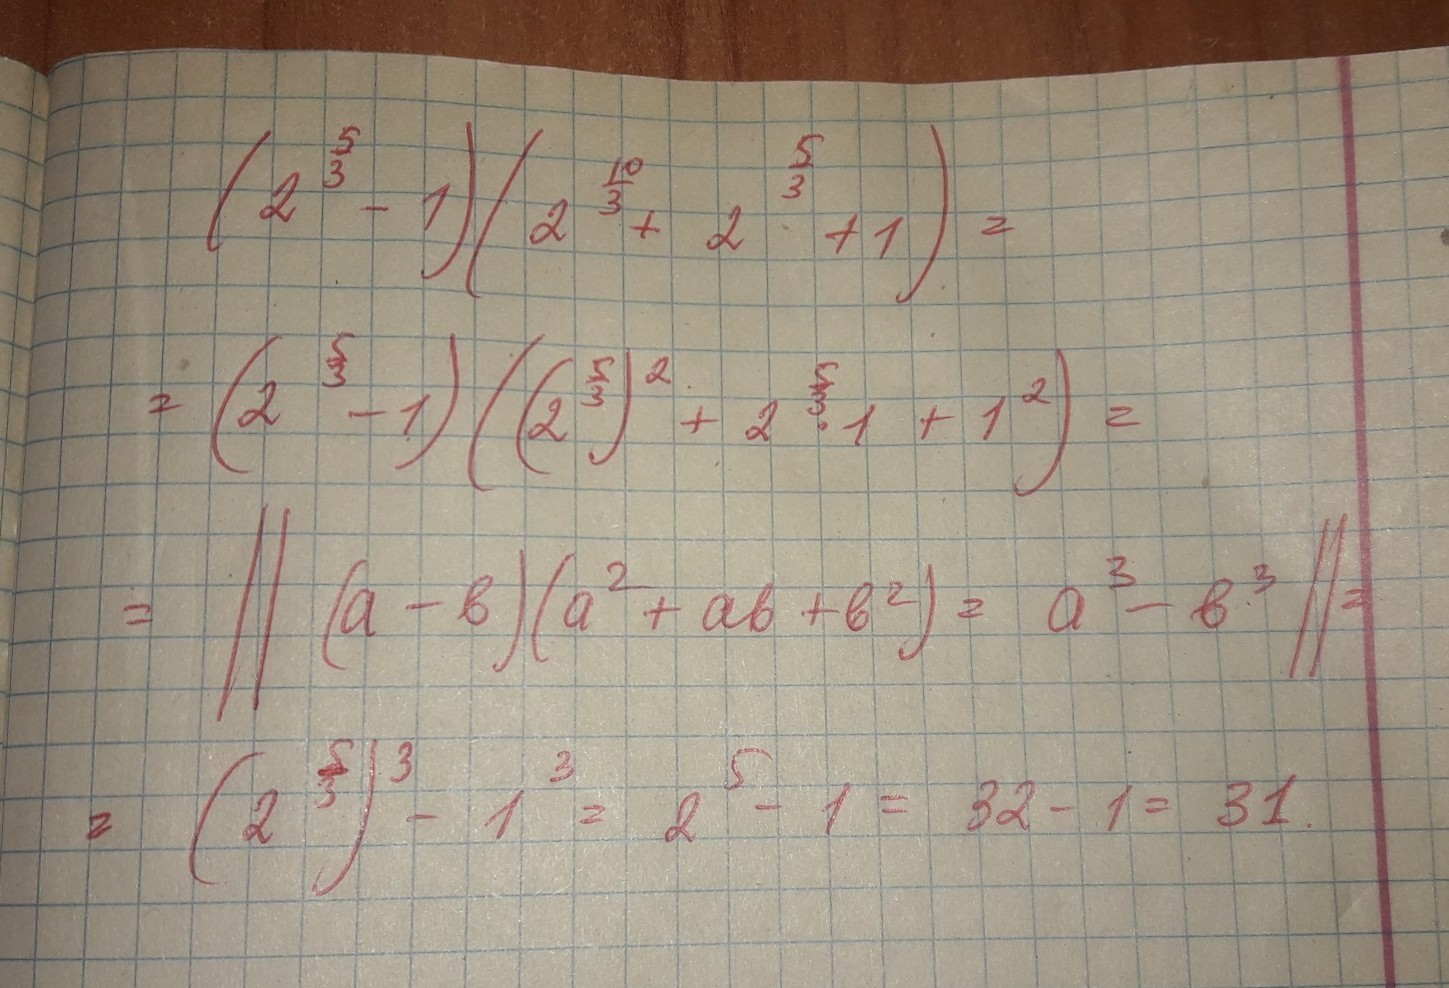 (2^(5/3) - 1)(2^(10/3) + 2^(5/3) + 1) =
= (2^(5/3) - 1)((2^(5/3))^2 + 2^(5/3) · 1 + 1^2) =
= || (a - в)(a^2 + aв + в^2) = a^3 - в^3 || =
= (2^(5/3))^3 - 1^3 = 2^5 - 1 = 32 - 1 = 31.